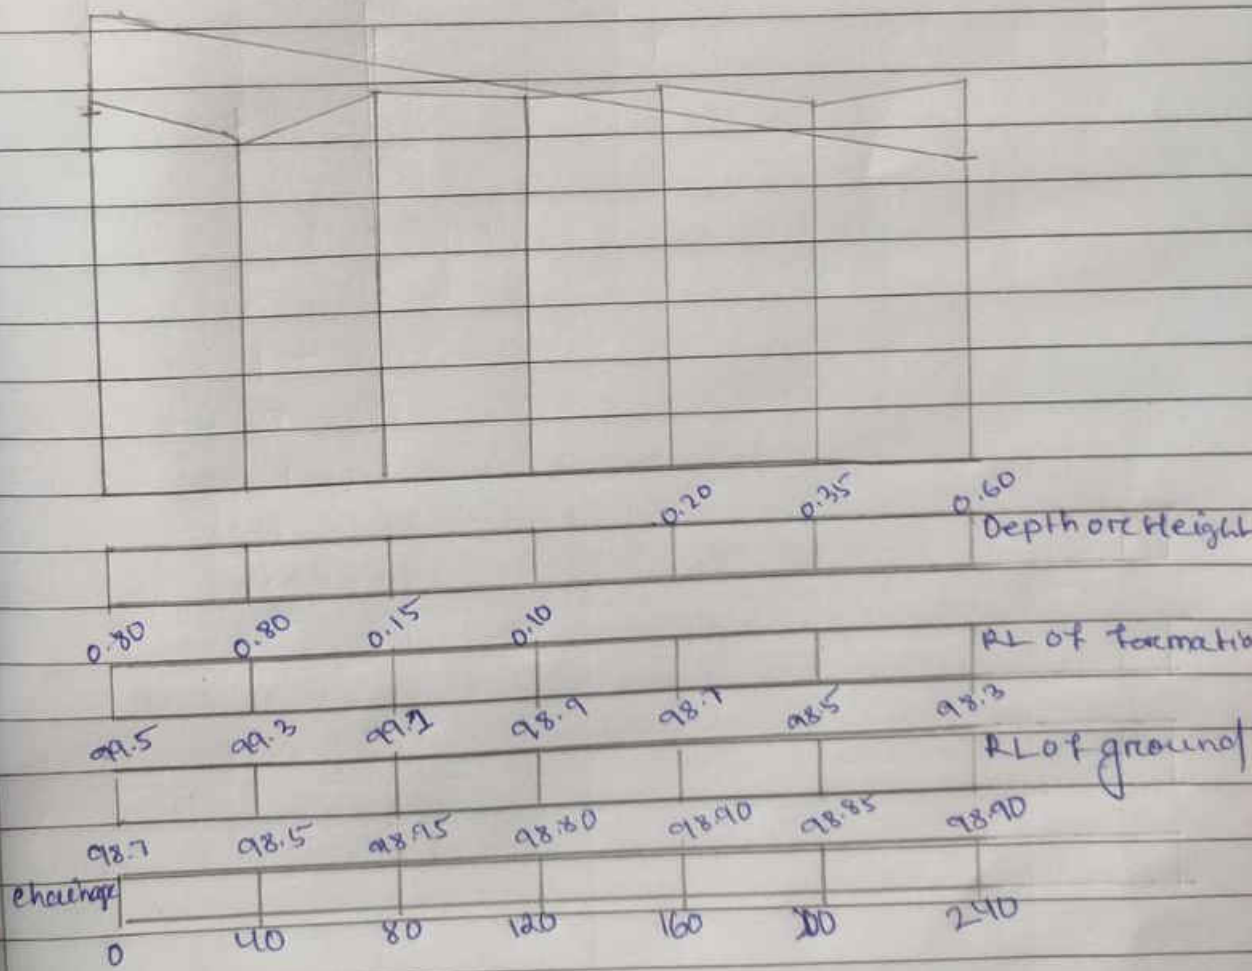 0.20 0.35 0.60
Depth ore Height
0.80 0.80 0.15 0.10
RL of formatio
99.5 99.3 99.1 98.9 98.7 98.5 98.3
RL of ground
98.7 98.5 98.95 98.80 98.90 98.85 98.90
0 40 80 120 160 200 240